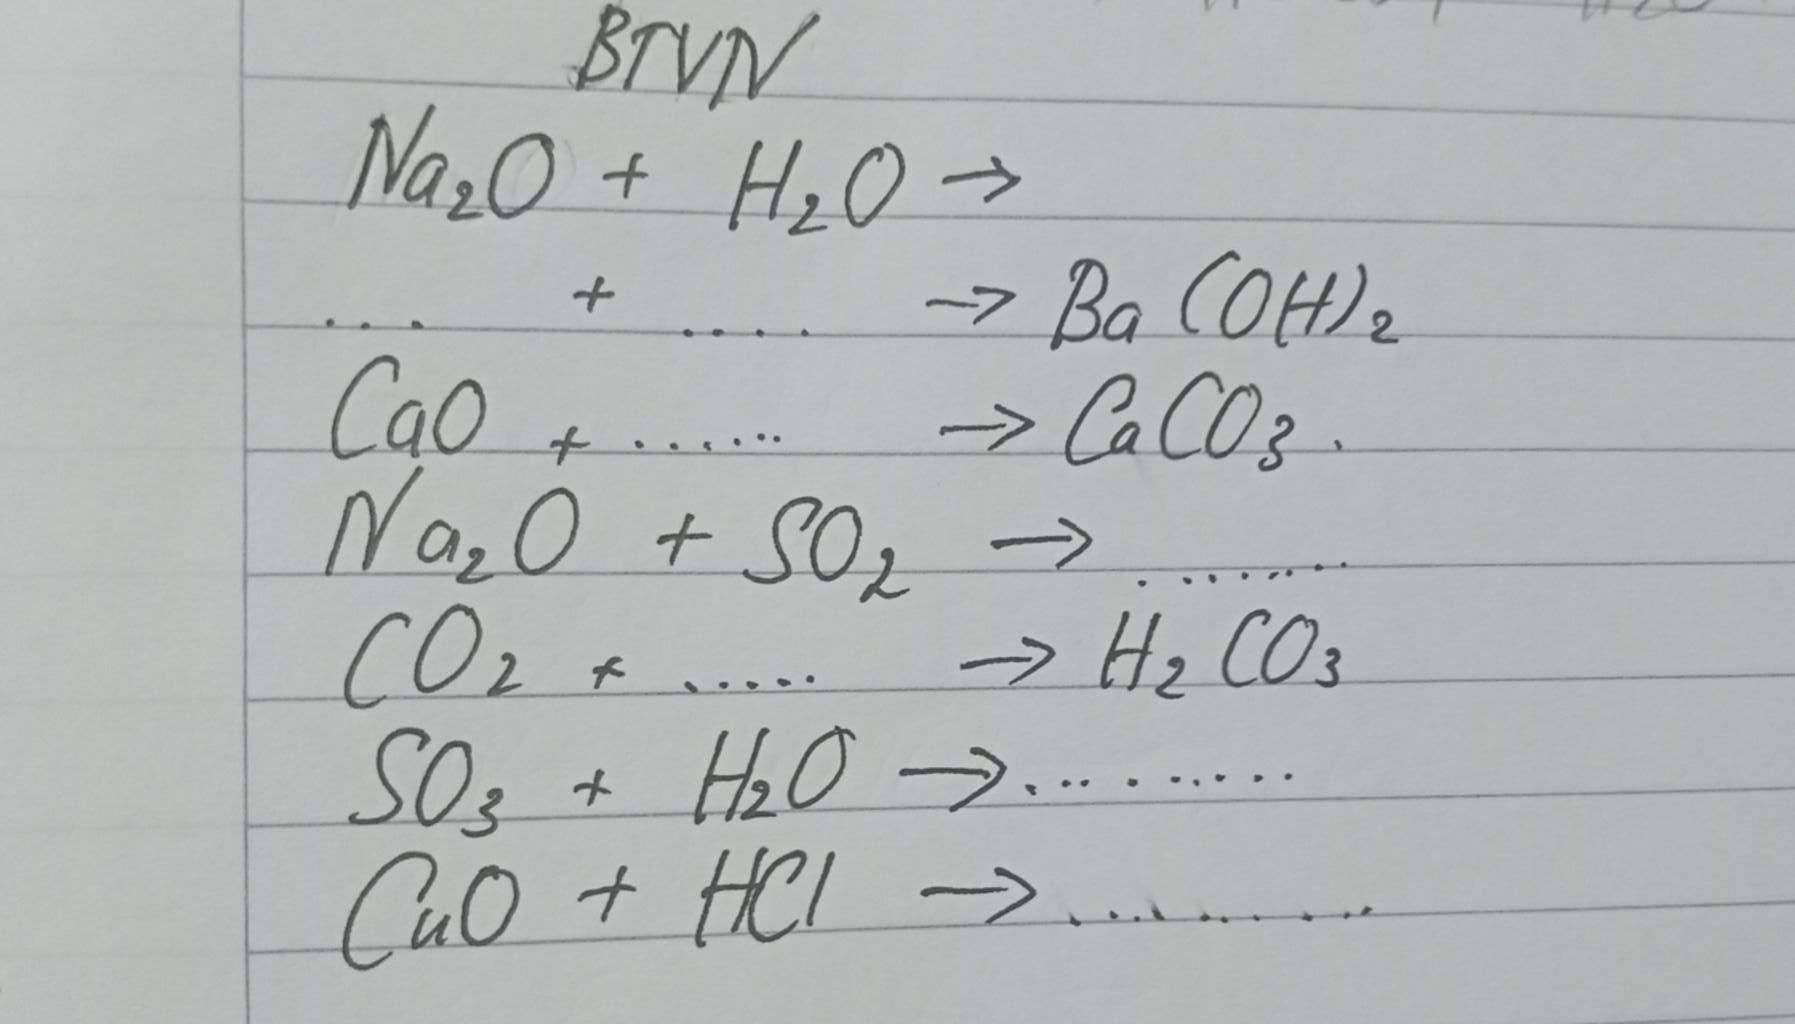 BTVN
Na₂O + H₂O →
... + .... → Ba(OH)₂
CaO + ...... → CaCO₃.
Na₂O + SO₂ → .......
CO₂ + ..... → H₂CO₃
SO₃ + H₂O → .........
CuO + HCl → .........